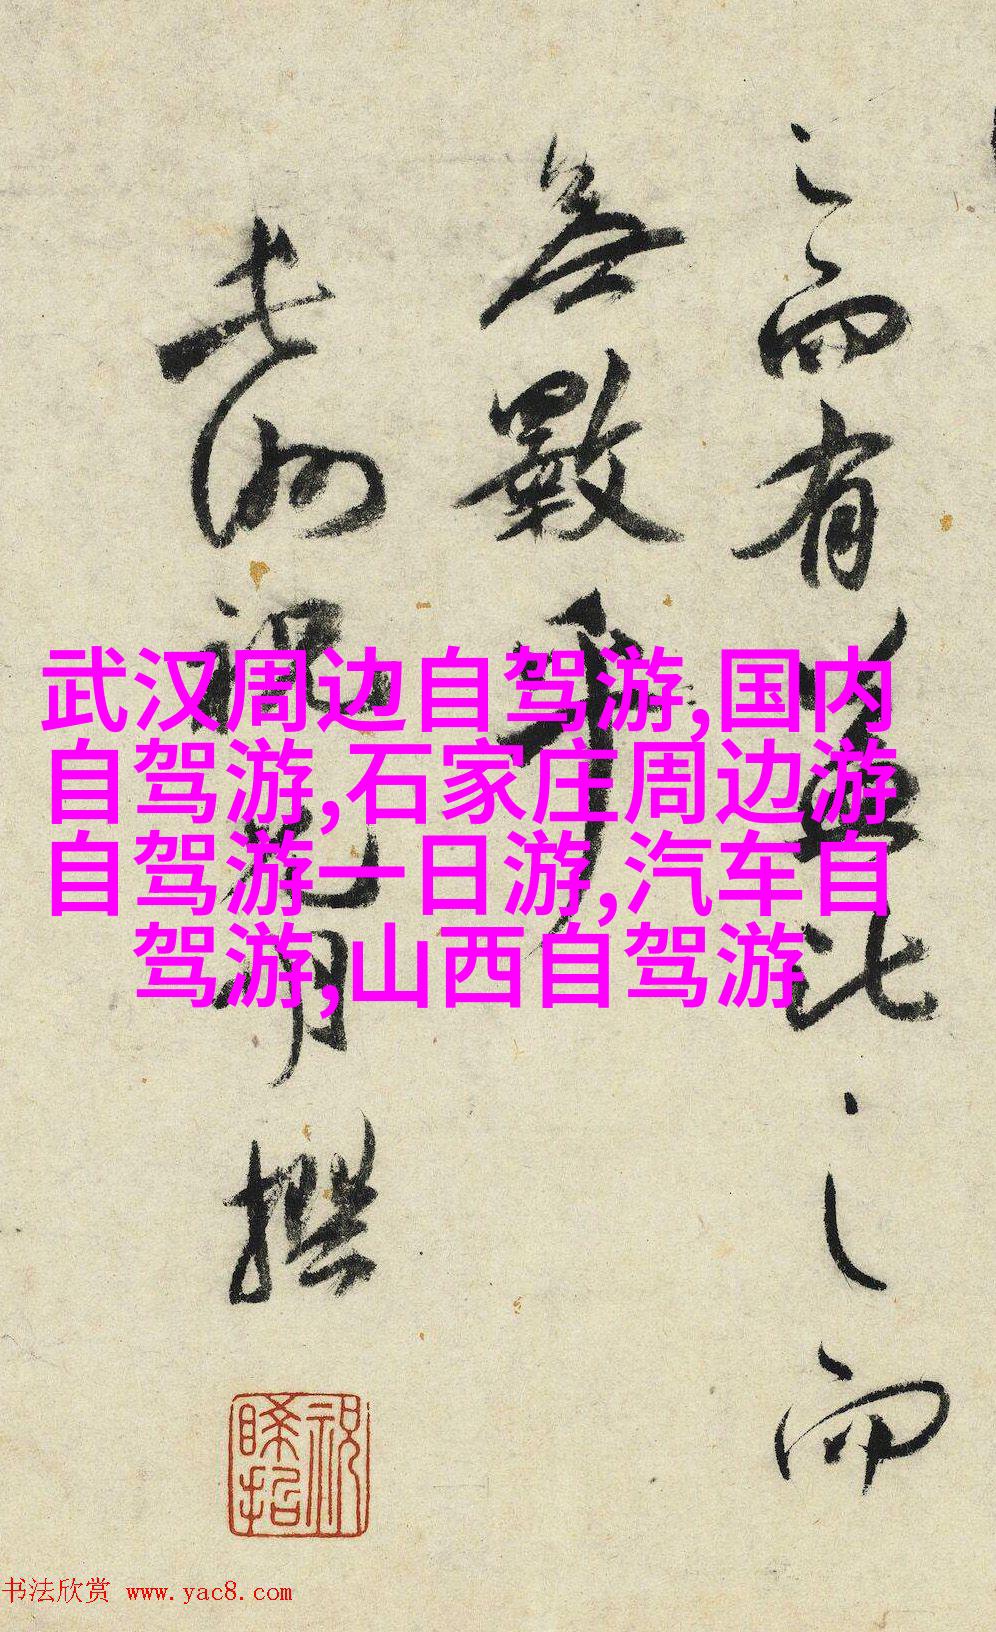 之而有益比之而
無數年
長洲祝允明撰
武汉周边自驾游,国内
自驾游,石家庄周边游
自驾游一日游,汽车自
驾游,山西自驾游
书法欣赏 www.yac8.com